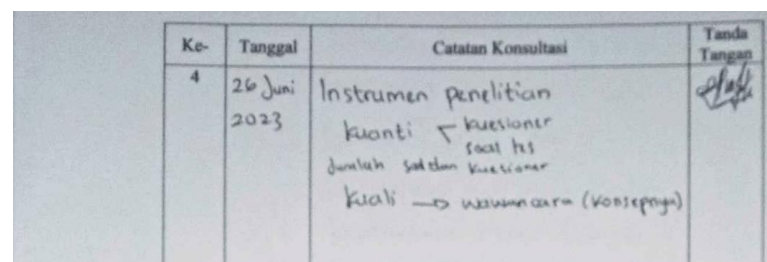 Ke- Tanggal Catatan Konsultasi Tanda Tangan
4 26 Juni 2023 Instrumen penelitian
kuanti kuesioner
soal tes
Jumlah soal dan kuesioner
kuali → wawancara (konsepnya)